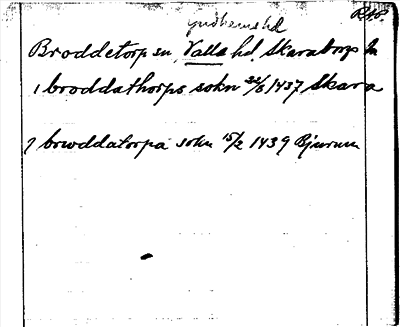 Gudhems hd
RAP.
Broddetorp sn, Valla hd, Skaraborgs ln
1 broddathorps sokn 22/8 1437 Skara
7 broddatorpa sokn 15/2 1439 Bjurum